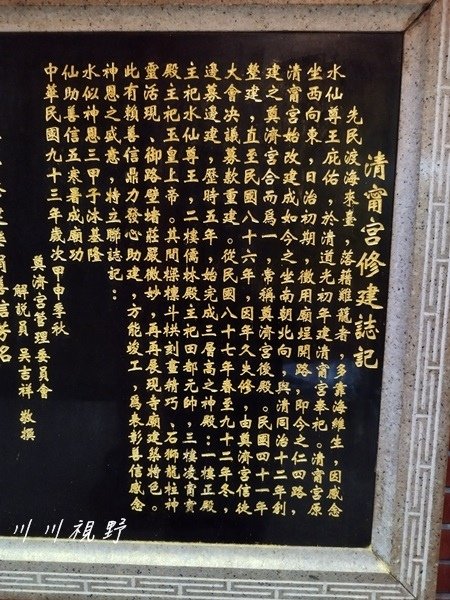 清甯宮修建誌記
先民渡海來臺，落籍雞籠者，多靠海維生，因感念
水仙尊王庇佑，於清道光初年建清甯宮奉祀。清甯宮原
坐西向東，日治初期，徵用廟埕開路，即今之仁四路，
清甯宮始改建成如今之坐南朝北向，與清同治十二年創
建之奠濟宮合而為一，常稱奠濟宮後殿。民國四十一年
整建，直至民國八十六年，因年久失修，由奠濟宮信徒
大會決議募款重建。從民國八十七年春至九十二年冬，
邊募邊建，歷時五年，始完成三層高之神殿：一樓正殿
主祀水仙尊王，二樓儒林殿主祀田都元帥，三樓凌霄寶
殿主祀玉皇上帝。其間樑棟斗栱刻畫精巧、石獅龍柱神
靈活現，御路壁堵莊嚴微妙，再再展現寺廟建築特色。
此有賴善信鼎力發心助建，方能竣工，為表彰善信感念
神恩之盛意，特立聯誌記：
水似神恩三甲子沐基隆
仙助善信五寒暑成廟功
中華民國九十三年歲次甲申季秋
奠濟宮管理委員會
解說員 吳吉祥 敬撰
川川視野